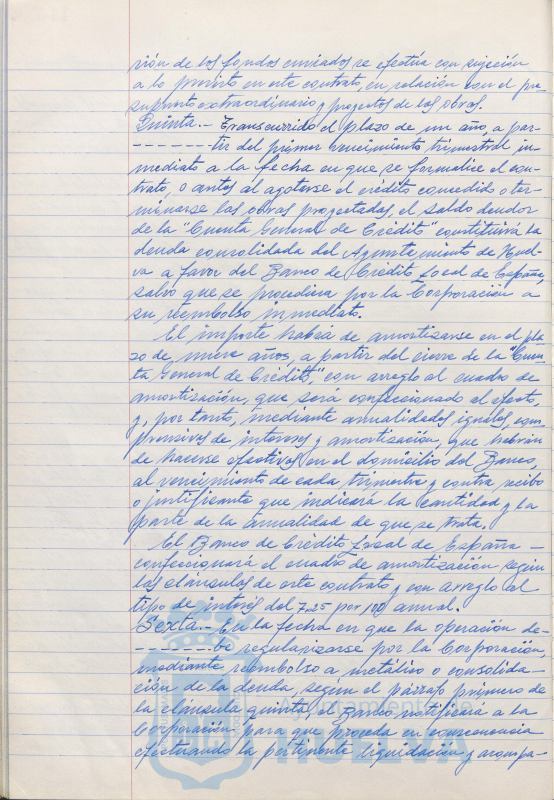 sión de los fondos enviados se efectúa con sujeción
a lo previsto en este contrato, en relación con el pre-
supuesto extraordinario y proyectos de las obras.
Quinta.- Transcurrido el plazo de un año, a par-
------- tir del primer vencimiento trimestral in-
mediato a la fecha en que se formalice el con-
trato, o antes al agotarse el crédito concedido o ter-
minarse las obras proyectadas, el saldo deudor
de la "Cuenta General de Crédito" constituirá la
deuda consolidada del Ayuntamiento de Huel-
va a favor del Banco de Crédito Local de España,
salvo que se procediera por la Corporación a
su reembolso inmediato.
El importe habrá de amortizarse en el pla-
zo de, nueve años, a partir del cierre de la "Cuen-
ta General de Crédito", con arreglo al cuadro de
amortización, que será confeccionado al efecto,
y, por tanto, mediante anualidades iguales, com-
prensivas de intereses y amortización, que habrán
de hacerse efectivas en el domicilio del Banco,
al vencimiento de cada trimestre y contra recibo
o justificante que indicará la cantidad y la
parte de la anualidad de que se trata.
El Banco de Crédito Local de España -
confeccionará el cuadro de amortización según
las cláusulas de este contrato y con arreglo al
tipo de interés del 7,25 por 100 anual.
Sexta.- En la fecha en que la operación de-
------- be regularizarse por la Corporación,
mediante reembolso a metálico o consolida-
ción de la deuda, según el párrafo primero de
la cláusula quinta, el Banco notificará a la
Corporación para que proceda en consecuencia
efectuando la pertinente liquidación y acompa-
Ayuntamiento de
HUELVA